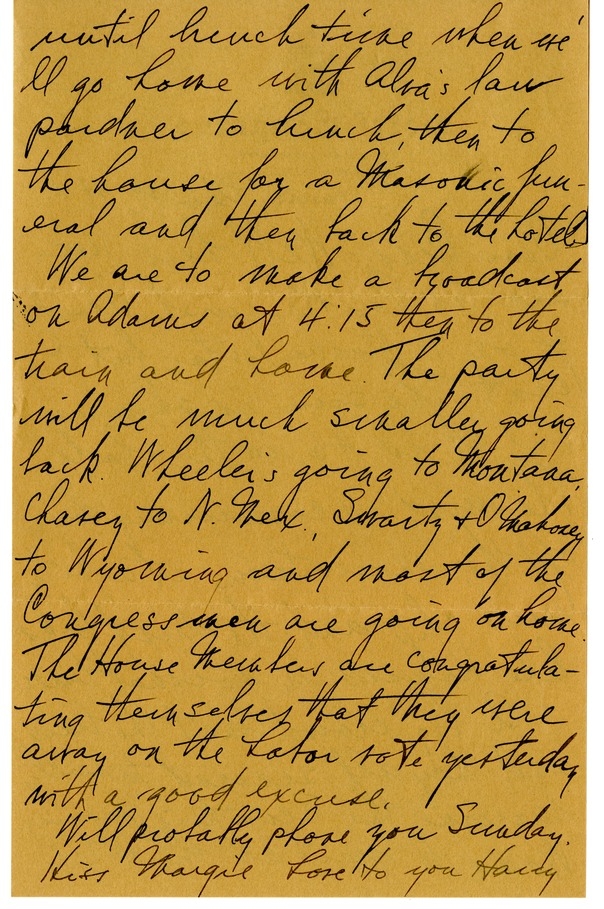 until lunch time when we'
ll go home with Alva's law
pardner to lunch, then to
the house for a Masonic fun-
eral and then back to the hotel.
We are to make a broadcast
on Adams at 4:15 then to the
train and home. The party
will be much smaller going
back. Wheeler is going to Montana,
Chavez to N. Mex., Swartz & O'Mahoney
to Wyoming and most of the
Congressmen are going on home.
The House Members are congratula-
ting themselves that they were
away on the Labor vote yesterday
with a good excuse.
Will probably phone you Sunday.
Kiss Margie Love to you Harry